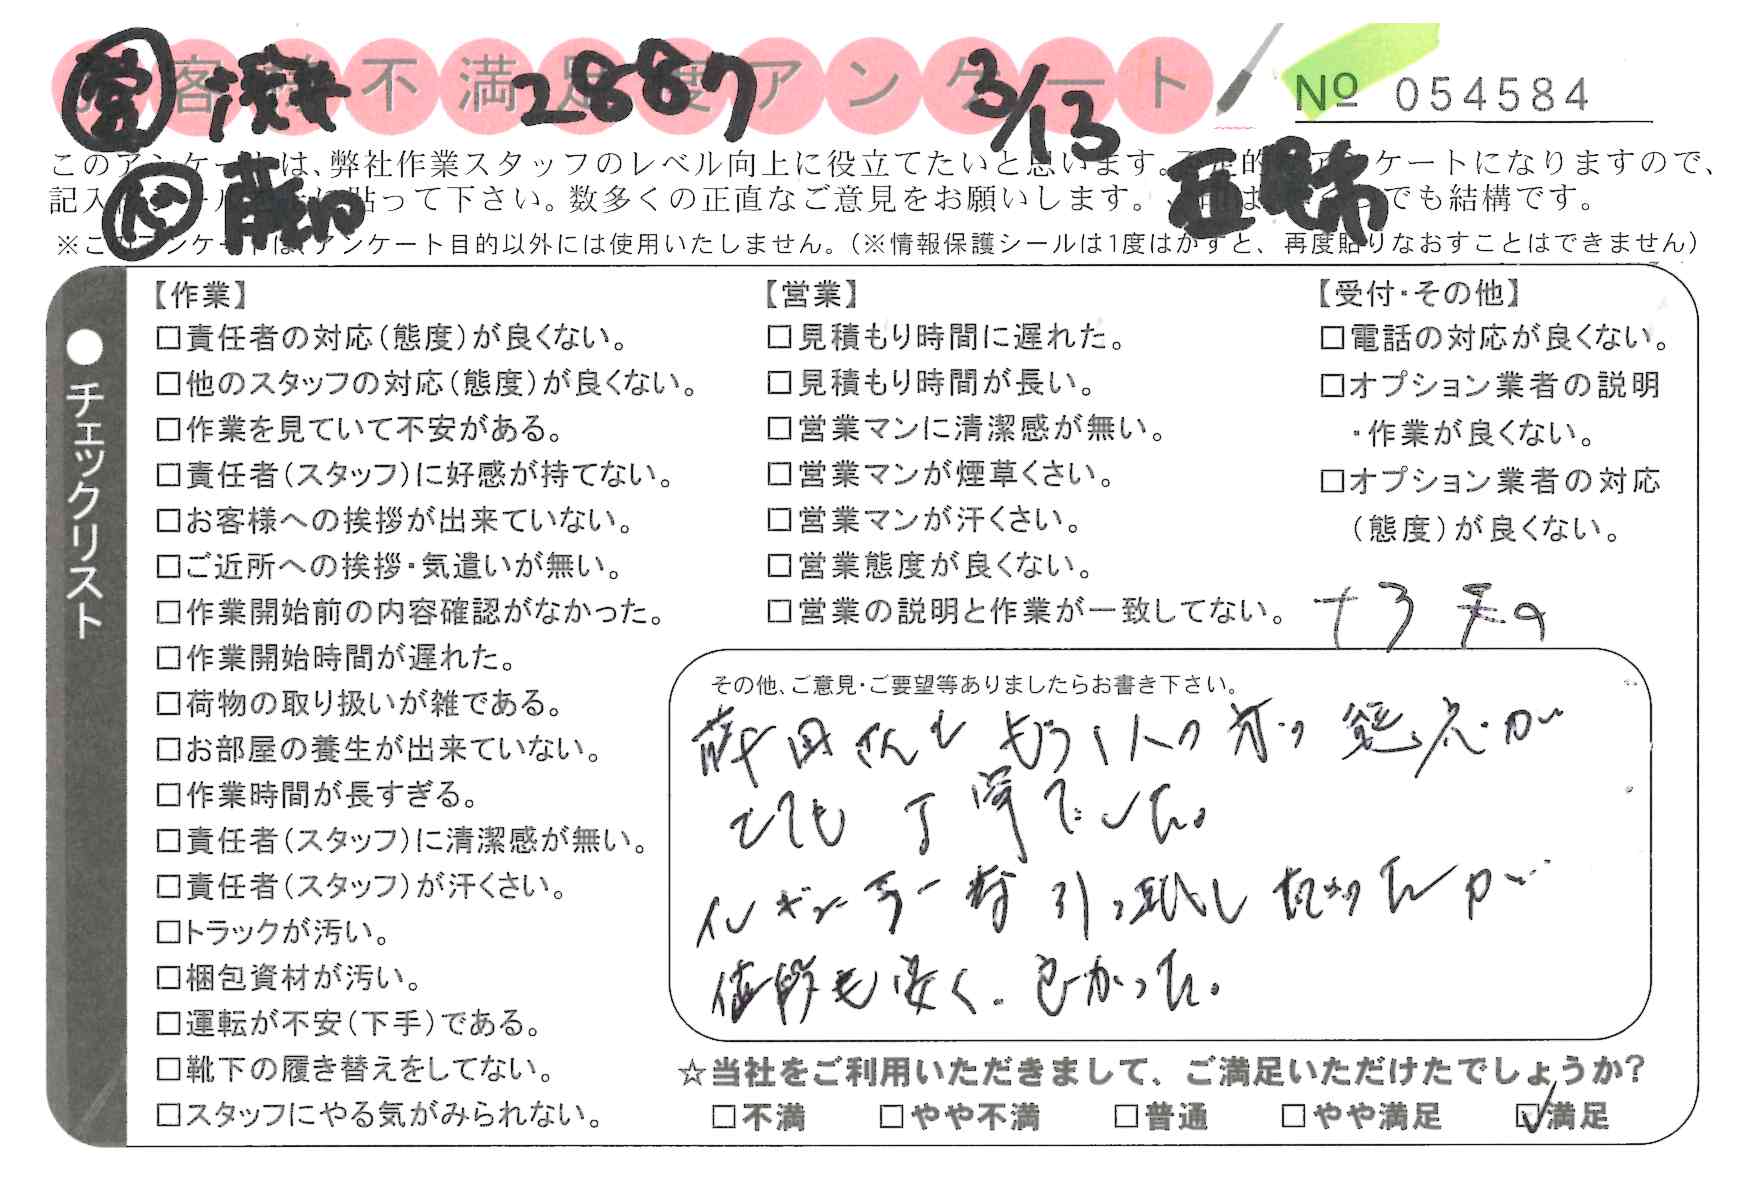 お客様不満足度アンケート
営 2887 3/13
№ 054584
このアンケートは、弊社作業スタッフのレベル向上に役立てたいと思います。不定的なアンケートになりますので、
ド 藤田
記入 シール 貼って下さい。数多くの正直なご意見をお願いします。 でも結構です。
※このアンケートは、アンケート目的以外には使用いたしません。（※情報保護シールは1度はがすと、再度貼りなおすことはできません）
●チェックリスト
【作業】
□責任者の対応（態度）が良くない。
□他のスタッフの対応（態度）が良くない。
□作業を見ていて不安がある。
□責任者（スタッフ）に好感が持てない。
□お客様への挨拶が出来ていない。
□ご近所への挨拶・気遣いが無い。
□作業開始前の内容確認がなかった。
□作業開始時間が遅れた。
□荷物の取り扱いが雑である。
□お部屋の養生が出来ていない。
□作業時間が長すぎる。
□責任者（スタッフ）に清潔感が無い。
□責任者（スタッフ）が汗くさい。
□トラックが汚い。
□梱包資材が汚い。
□運転が不安（下手）である。
□靴下の履き替えをしてない。
□スタッフにやる気がみられない。
【営業】
□見積もり時間に遅れた。
□見積もり時間が長い。
□営業マンに清潔感が無い。
□営業マンが煙草くさい。
□営業マンが汗くさい。
□営業態度が良くない。
□営業の説明と作業が一致してない。
【受付・その他】
□電話の対応が良くない。
□オプション業者の説明
・作業が良くない。
□オプション業者の対応
（態度）が良くない。
その他、ご意見・ご要望等ありましたらお書き下さい。
藤田さんも もう1人の方の 態度が
とても 丁寧でした。
イレギュラーな 引っ越し だったが
値段も安く、良かった。
☆当社をご利用いただきまして、ご満足いただけたでしょうか?
□不満 □やや不満 □普通 □やや満足 ☑満足